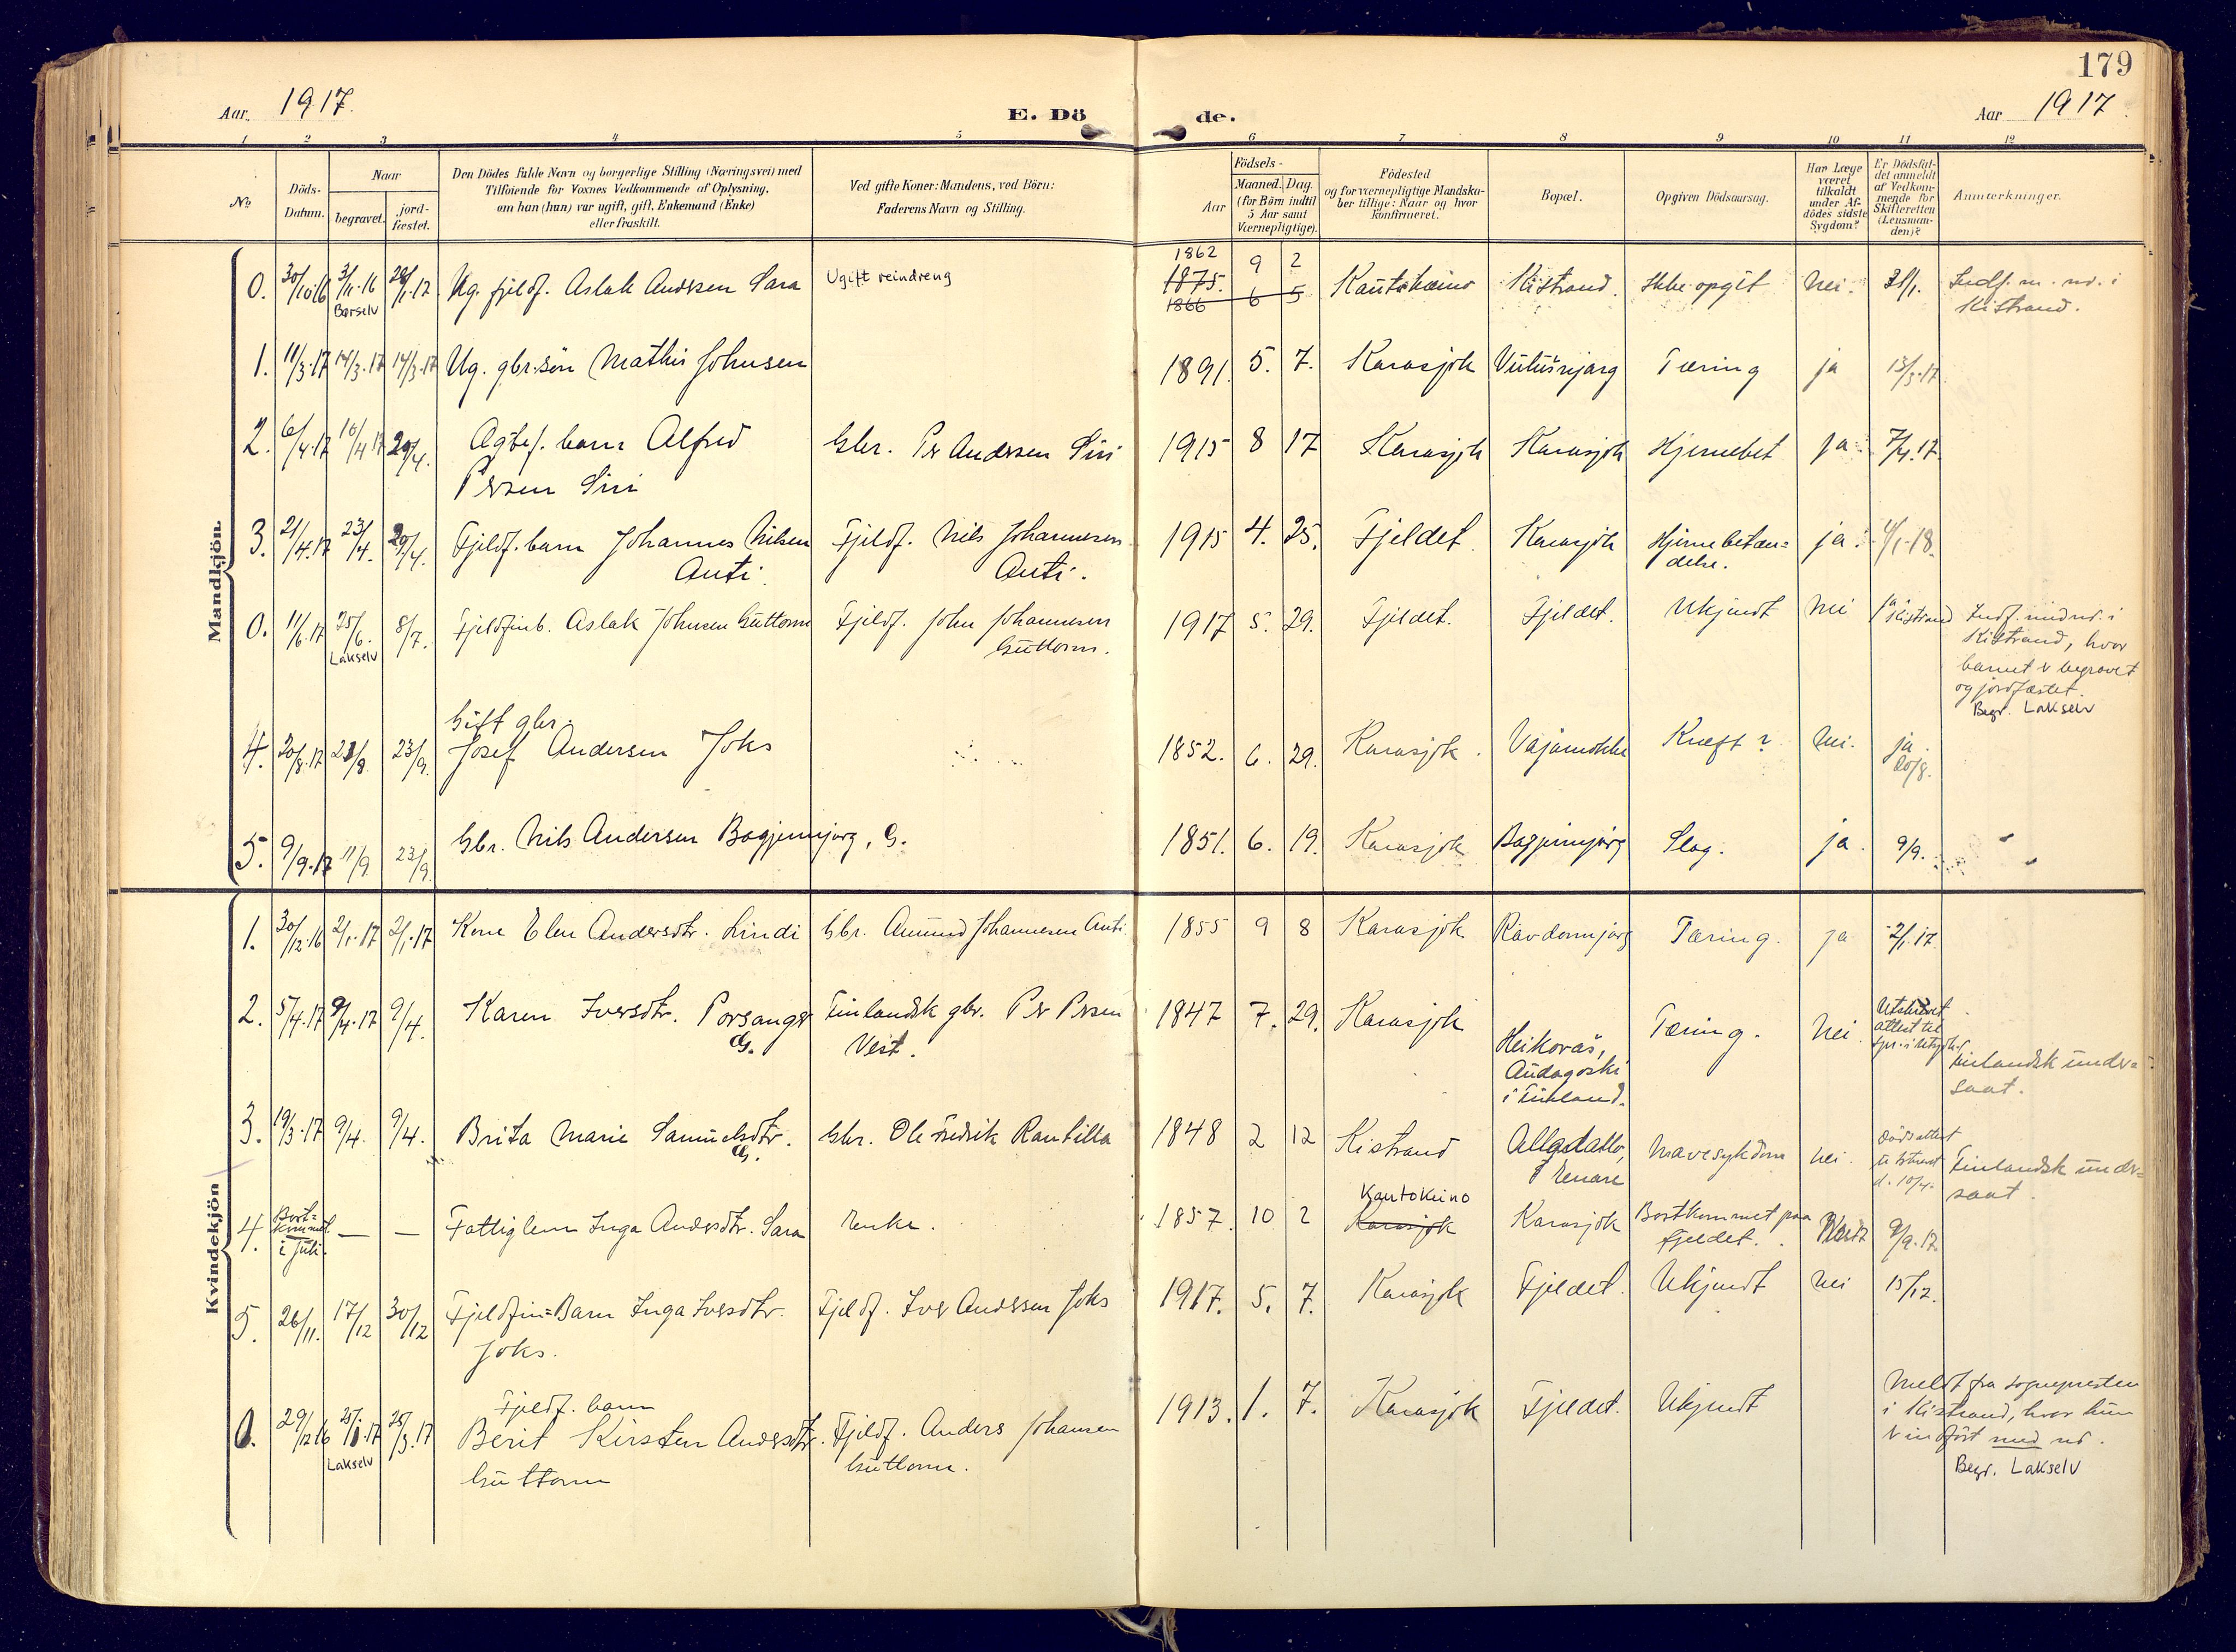 179
Aar. 1917.
E. Dö de.
Aar 1917.
1 2 3 4 5 6 7 8 9 10 11 12
No
Döds-
Datum.
Naar
begravet.
jord-
fæstet.
Den Dödes fulde Navn og borgerlige Stilling (Næringsvei) med
Tilföiende for Voxnes Vedkommende af Oplysning,
om han (hun) var ugift, gift, Enkemand (Enke)
eller fraskilt.
Ved gifte Koner: Mandens, ved Börn:
Faderens Navn og Stilling.
Födsels-
Aar
Maaned. Dag.
(for Börn indtil
5 Aar samt
Værnepligtige).
Födested
og for værnepligtige Mandska-
ber tillige: Naar og hvor
konfirmeret.
Bopæl.
Opgiven Dödsaarsag.
Har Læge
været
tilkaldt
under Af-
dödes sidste
Sygdom?
Er Dödsfal-
det anmeldt
af Vedkom-
mende for
Skifteretten
(Lensman-
den)?
Anmærkninger.
Mandkjön.
1862 9 2
0. 30/10.16 3/11.16 28/1.17 Ug. fjeldf. Aslak Andersen Sara Ugift reindreng 1875. Kautokeino Kistrand. Ikke opgit Nei. 31/1. Indf. m. nr. i
Børselv 1866 6 5 Kistrand.
1. 11/3.17 14/3.17 14/3.17 Ug. gbr.søn Mathis Johnsen 1891. 5. 7. Karasjok Tæring ja 13/3.17
2. 6/4.17 10/4.17 29/4. barn Alfred Gbr. Per Andersen Siri 1915 8 17 Karasjok Karasjok Hjernebet ja 7/4.17.
Persen Siri
3. 21/4.17 23/4. 29/4. Fjeldf. barn Johannes Nilsen Fjeldf. Nils Johannesen 1915 4. 25. Fjeldet. Karasjok Hjernebetæn= ja. 4/1.18.
Anti. Anti. delse.
0. 11/6.17 25/6. 8/7. Fjeldfinb. Aslak Johnsen Guttorm Fjeldf. John Johannesen 1917 5. 29. Fjeldet. Fjeldet. Ukjendt Nei ja Kistrand Indf. med nr. i
Lakselv Guttorm. Kistrand, hvor
barnet er begravet
og jordfæstet.
Begr. Lakselv
Gift gbr.
4. 20/8.17 23/8 23/9. Josef Andersen Joks 1852. 6. 29. Karasjok. Kræft? Nei. ja.
20/8.
5. 9/9.17 11/9 23/9. Gbr. Nils Andersen Bagjinnjarg, G. 1851. 6. 19. Karasjok Bagjinnjarg Slag. ja. 9/9. "
"
Kvindekjön
1. 30/12.16 2/1.17 2/1.17 Kone Elen Andersdtr. Lindi Gbr. Amund Johannesen Anti. 1855 9 8 Karasjok Ravdonnjarg Tæring. ja 2/1.17.
2. 5/4.17 9/4.17 9/4. Karen Iversdtr. Porsanger Finlandsk gbr. Per Persen 1847 7. 29. Karasjok Heikovas, Tæring. Nei. Utskrevet
G. Veit. Audagoski attest til
i Finland. Finlandsk under=
saat.
3. 19/3.17 9/4. 9/4. Brita Marie Samuelsdtr. Gbr. Ole Fredrik Rautilla 1848 2 12 Kistrand Mavesykdom nei. Dødsattest
G. Enare d. 10/4. Finlandsk under=
saat.
Bort=
kommet
i juli.
Kautokeino
4. — — Fattiglem Inga Andersdtr. Sara Enke. 1857. 10 2 Karasjok Karasjok Bortkommet paa 9/9.17.
fjeldet.
5. 26/11. 17/12 30/12 Fjeldfin=Barn Inga Iversdtr. Fjeldf. Iver Andersen Joks 1917. 5. 7. Karasjok Fjeldet. Ukjendt Nei 15/12.
Joks.
Fjeldf. barn
0. 29/12.16 25/1.17 25/3.17 Berit Kirsten Andersdtr. Fjeldf. Anders Johansen 1913. 1. 7. Karasjok Fjeldet. Ukjendt Meldt fra sognepresten
Lakselv Guttorm Guttorm. i Kistrand, hvor hun
er indført med nr.
Begr. Lakselv